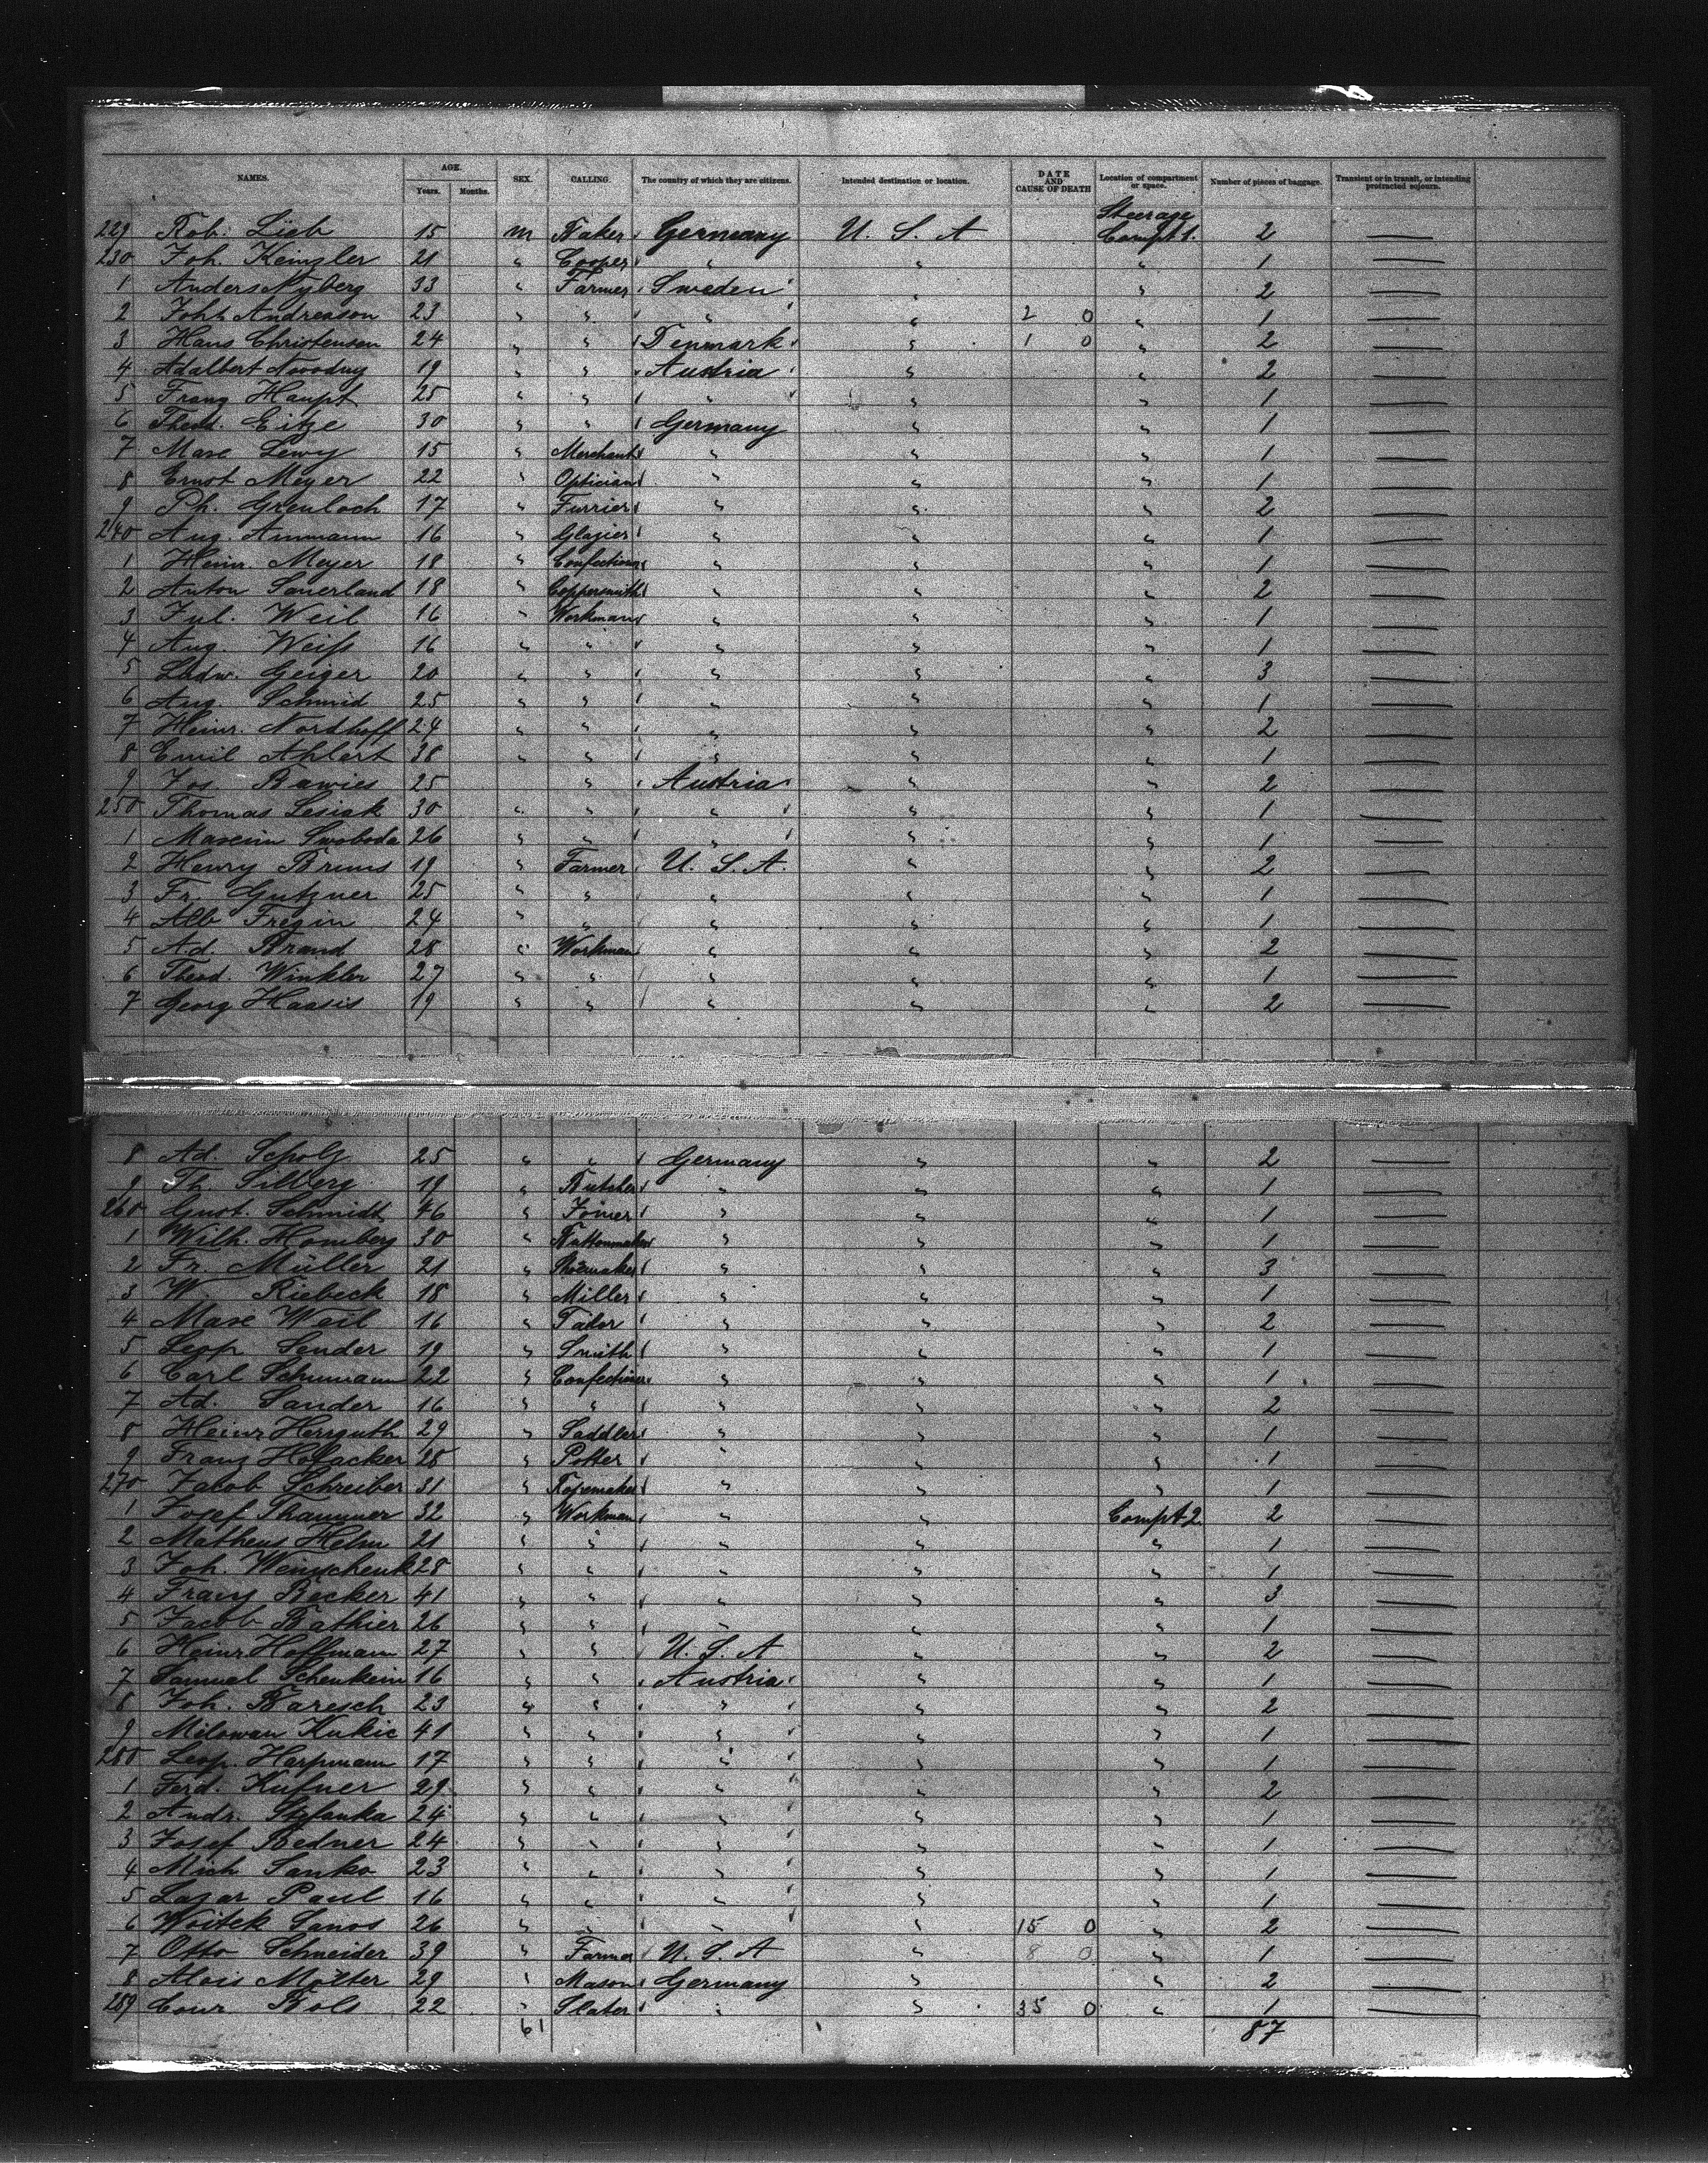 NAMES. AGE. SEX. CALLING. The country of which they are citizens. Intended destination or location. DATE AND CAUSE OF DEATH Location of compartment or space. Number of pieces of baggage. Transient or in transit, or intending protracted sojourn.
Years. Months.
229 Rob. Lieb 15 m Baker Germany U. S. A Steerage Compt 1. 2 —
230 Joh. Keinzler 21 " Cooper " " " 1 —
1 Anders Nyberg 33 " Farmer Sweden " " 2 —
2 Joh. Andreason 23 " " " " 2 0 " 1 —
3 Hans Christensen 24 " " Denmark " 1 0 " 2 —
4 Adalbert 19 " " Austria " " 2 —
5 Franz Haupt 25 " " " " " 1 —
6 Theod. Eitze 30 " " Germany " " 1 —
7 Max Lewy 15 " Merchant " " " 1 —
8 Ernst Meyer 22 " Optician " " " 1 —
9 Ph. Grenloch 17 " Furrier " " " 2 —
240 Aug. Ammann 16 " Glazier " " " 1 —
1 Heinr. Meyer 18 " Confectioner " " " 1 —
2 Anton Sauerland 18 " Coppersmith " " " 2 —
3 Jul. Weil 16 " Workman " " " 1 —
4 Aug. Weiß 16 " " " " " 1 —
5 Ludw. Geiger 20 " " " " " 3 —
6 Aug. Schmid 25 " " " " " 1 —
7 Heinr. Nordhoff 24 " " " " " 2 —
8 Emil Ahlert 38 " " " " " 1 —
9 Jos. Bawies 25 " Austria " " 2 —
250 Thomas Lesiak 30 " " " " " 1 —
1 Maxim Swoboda 26 " " " " " 1 —
2 Henry Bruns 19 " Farmer U. S. A. " " 2 —
3 Fr. Gutzner 25 " " " " " 1 —
4 Alb Frezin 24 " " " " " 1 —
5 Ad. Brand 28 " Workman " " " 2 —
6 Theod. Winkler 27 " " " " " 1 —
7 Georg Haasis 19 " " " " " 2 —
8 Ad. Scholz 25 " " Germany " " 2 —
9 Th. Silberg 19 " Butcher " " " 1 —
260 Gust. Schmidt 46 " Joiner " " " 1 —
1 Wilh. Homberg 30 " Buttonmaker " " " 1 —
2 Fr. Müller 21 " Shoemaker " " " 3 —
3 W. Riebeck 18 " Miller " " " 1 —
4 Max Weil 16 " " " " 2 —
5 Leop Sender 19 " Smith " " " 1 —
6 Carl Schumann 22 " Confectioner " " " 1 —
7 Ad. Sander 16 " " " " " 2 —
8 Heinr Herrguth 29 " Saddler " " " 1 —
9 Franz Hofacker 28 " Potter " " " 1 —
270 Jacob Schreiber 31 " Ropemaker " " " 1 —
1 Josef Thammer 32 " Workman " " Compt 2. 2 —
2 Matheus Helm 21 " " " " " 1 —
3 Joh. Weinschenk 28 " " " " " 1 —
4 Franz Becker 41 " " " " " 3 —
5 Jacob Bathier 26 " " " " " 1 —
6 Heinr. Hoffmann 27 " " U. S. A " " 2 —
7 Samuel Schenkein 16 " " Austria " " 1 —
8 Joh. Baresch 23 " " " " " 2 —
9 Milowan Kukic 41 " " " " " 1 —
280 Leop. Harpmann 17 " " " " " 1 —
1 Ferd. Kufner 29 " " " " " 2 —
2 Andr. Stefanka 24 " " " " " 1 —
3 Josef Redner 24 " " " " " 1 —
4 Mich Sanko 23 " " " " " 1 —
5 Lazar Paul 16 " " " " " 1 —
6 Woitek Sanos 26 " " " " 15 0 " 2 —
7 Otto Schneider 39 " Farmer U. S. A " 8 0 " 1 —
8 Alois Motter 29 " Mason Germany " " 2 —
289 Conr Bols 22 " Slater " " 35 0 " 1 —
61 87